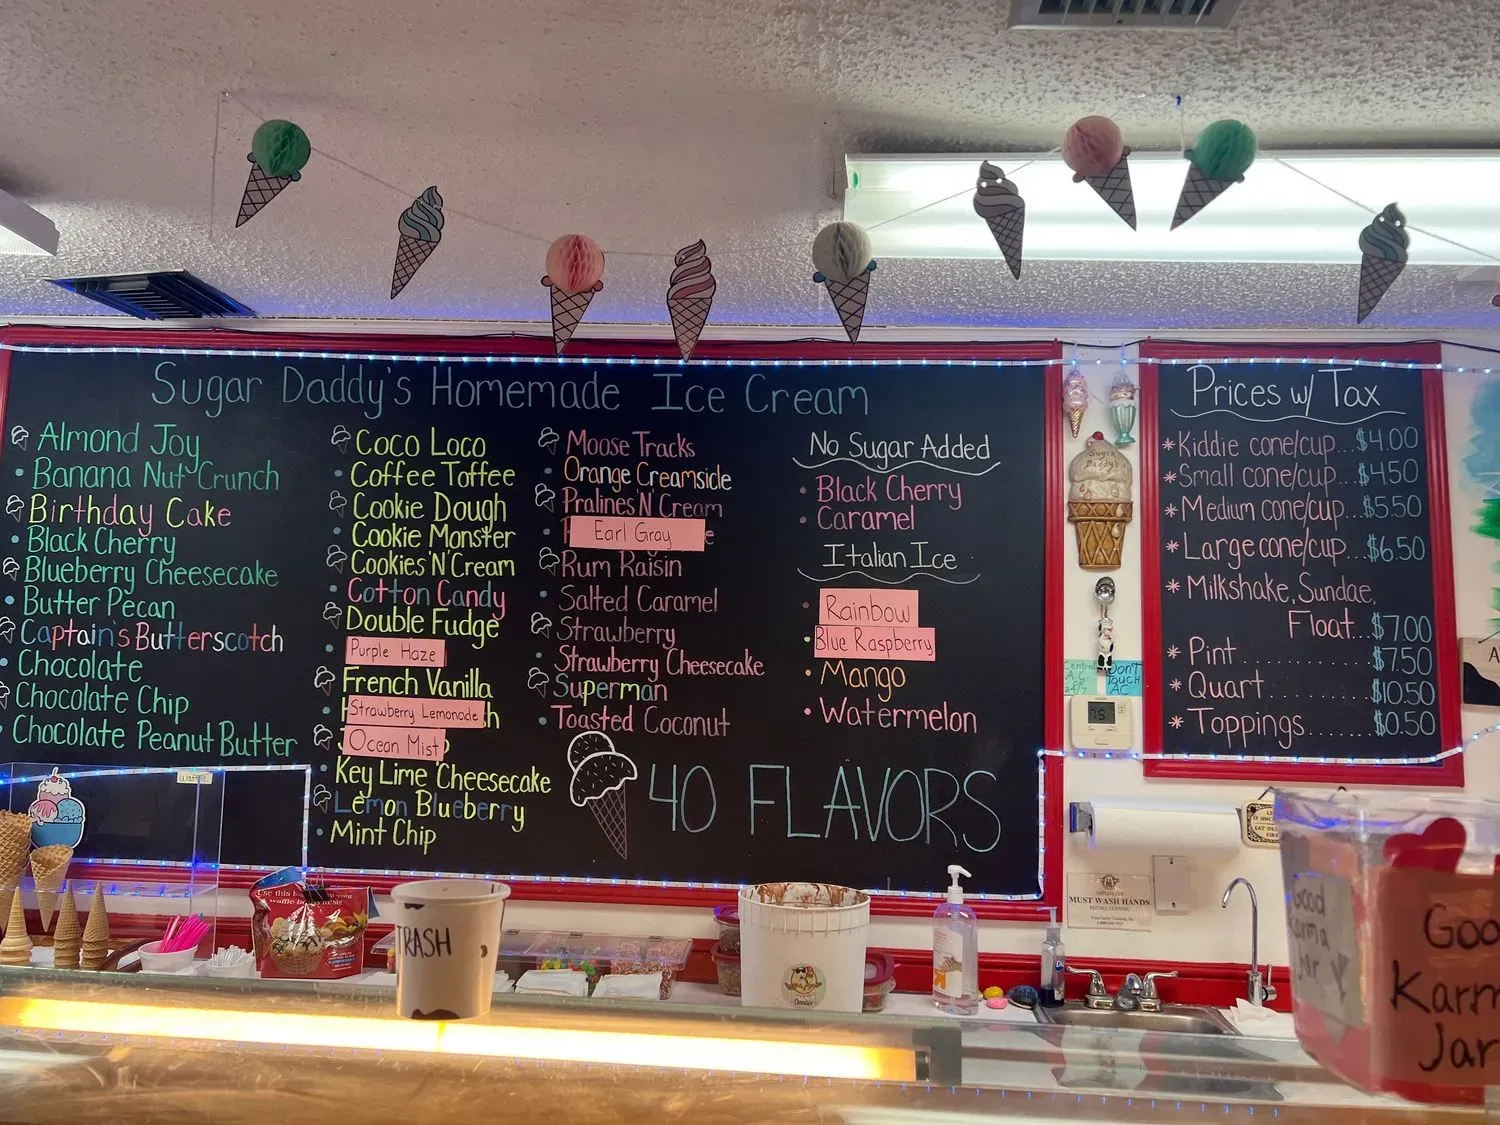 Sugar Daddy's Homemade Ice Cream
Almond Joy
Banana Nut Crunch
Birthday Cake
Black Cherry
Blueberry Cheesecake
Butter Pecan
Captain's Butterscotch
Chocolate
Chocolate Chip
Chocolate Peanut Butter
Coco Loco
Coffee Toffee
Cookie Dough
Cookie Monster
Cookies 'N' Cream
Cotton Candy
Double Fudge
Purple Haze
French Vanilla
Strawberry Lemonade
Ocean Mist
Key Lime Cheesecake
Lemon Blueberry
Mint Chip
Moose Tracks
Orange Creamsicle
Pralines 'N' Cream
Earl Gray
Rum Raisin
Salted Caramel
Strawberry
Strawberry Cheesecake
Superman
Toasted Coconut
40 FLAVORS
No Sugar Added
Black Cherry
Caramel
Italian Ice
Rainbow
Blue Raspberry
Mango
Watermelon
Sugar
Daddy's
Central
A.C.
24/7
Don't
Touch
AC
75
Prices w/ Tax
Kiddie cone/cup...$4.00
Small cone/cup...$4.50
Medium cone/cup...$5.50
Large cone/cup...$6.50
Milkshake, Sundae,
Float...$7.00
Pint..........$7.50
Quart.........$10.50
Toppings.......$0.50
Waffle
TRASH
Chocolate
MUST WASH HANDS
BEFORE LEAVING
Good
Karma
Jar
Goo
Karm
Jar